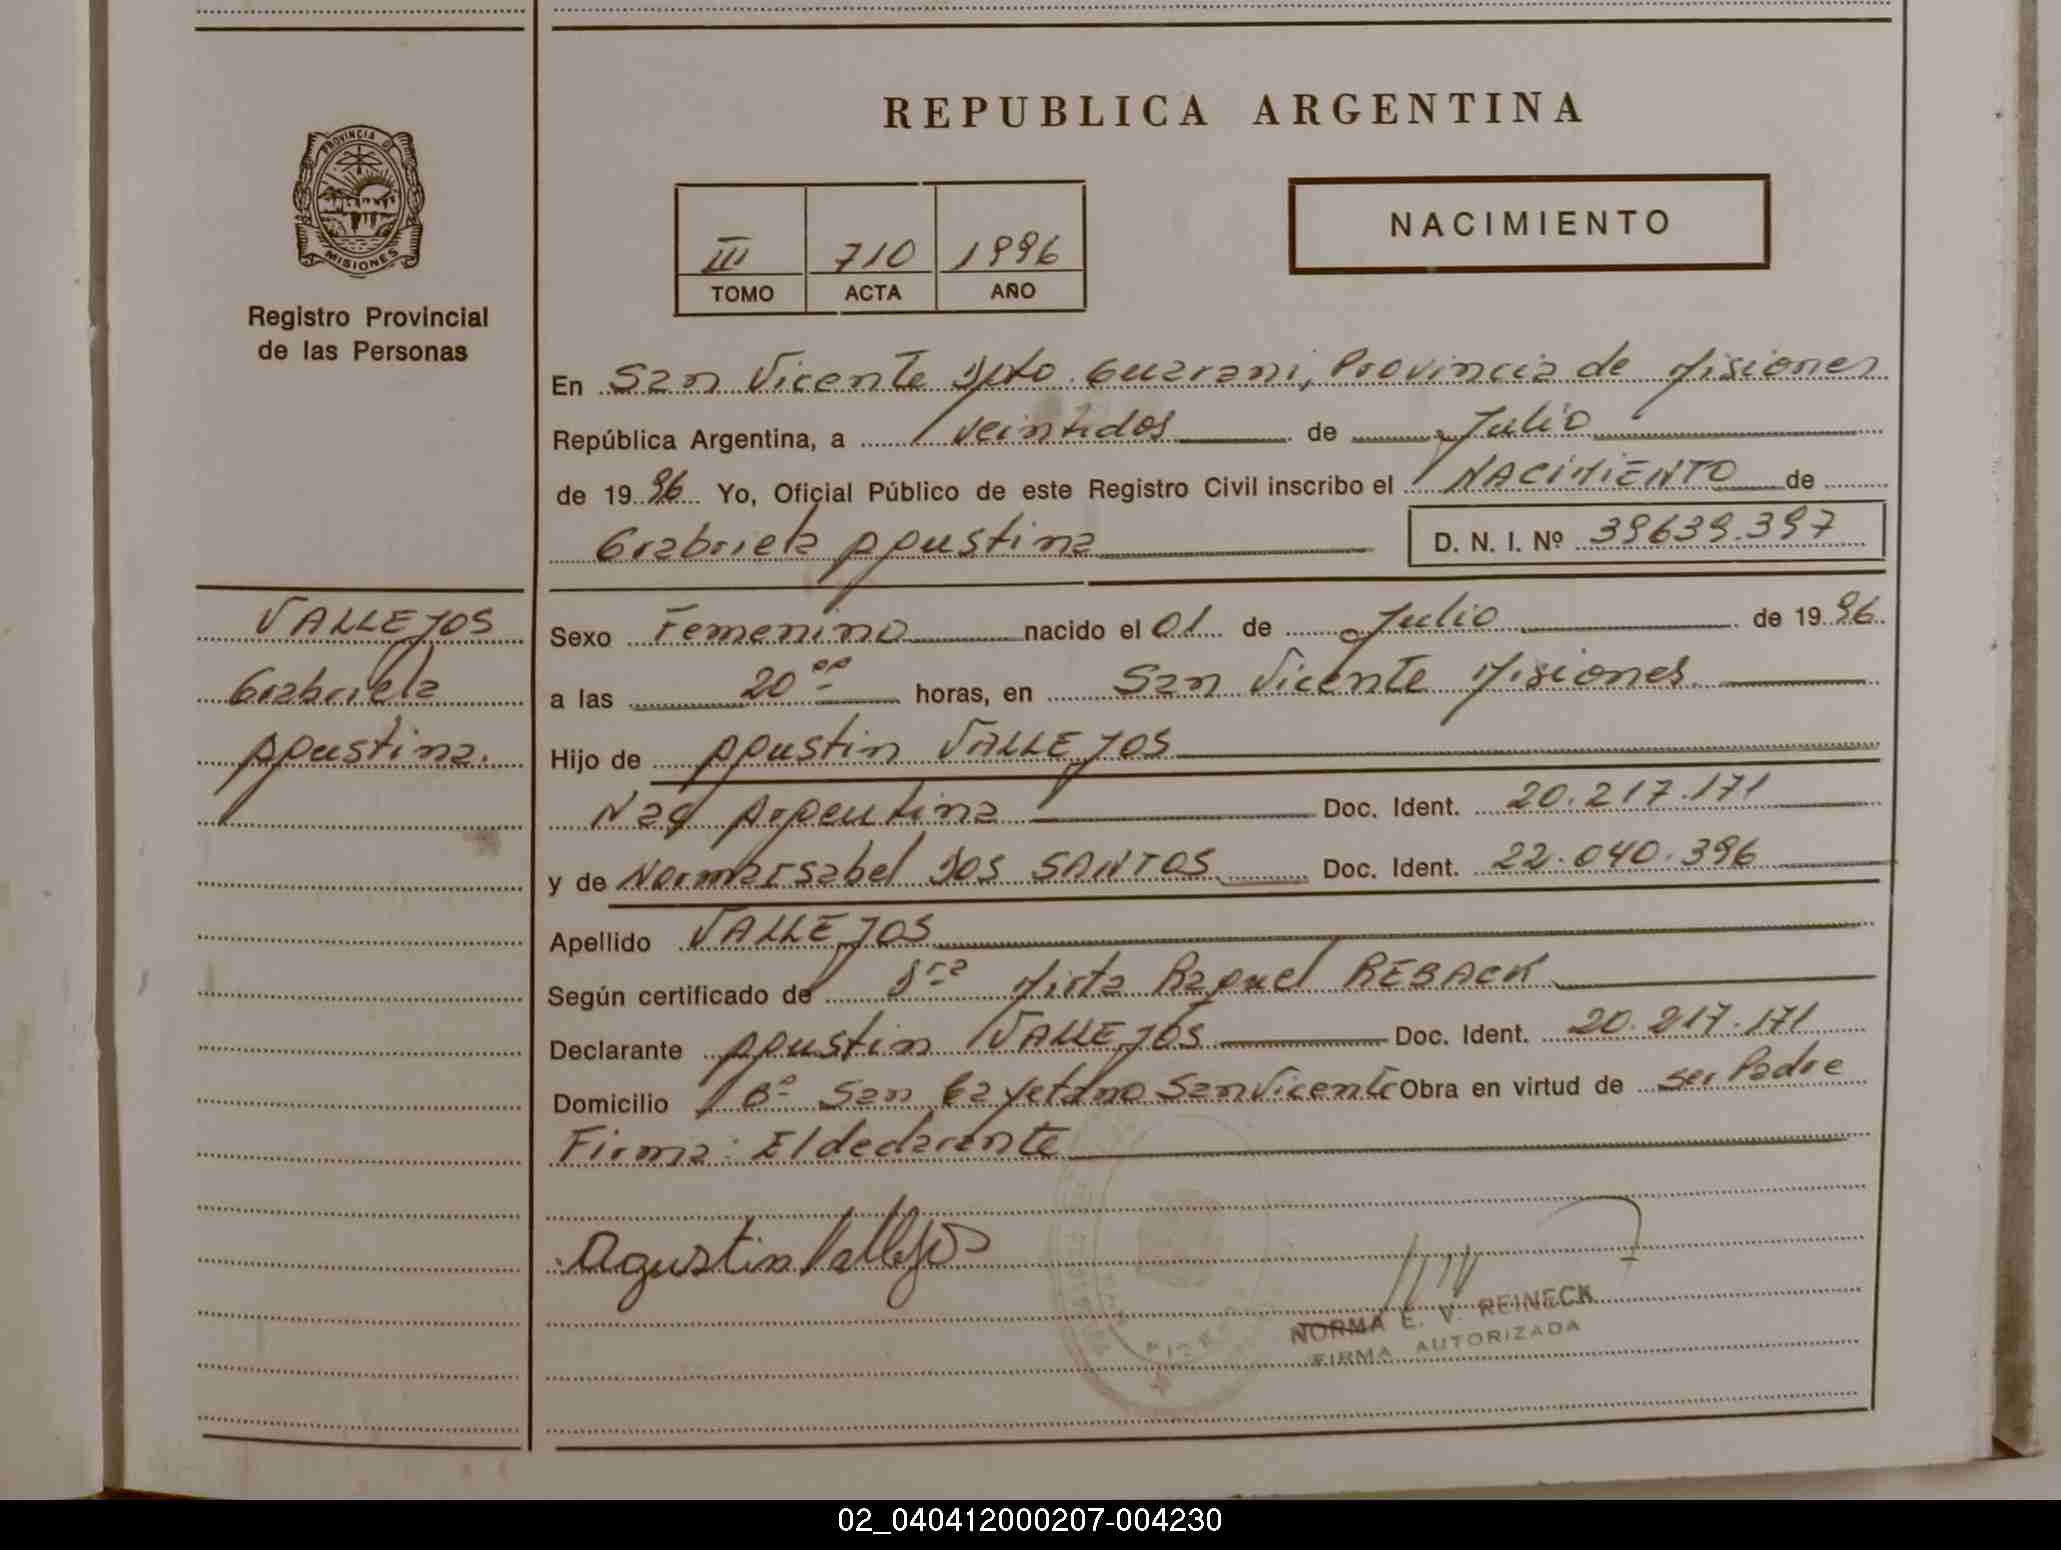 REPUBLICA ARGENTINA
PROVINCIA DE
MISIONES
Registro Provincial
de las Personas
III 710 1996
TOMO ACTA AÑO
NACIMIENTO
En San Vicente Dpto. Guarani, Provincia de Misiones
República Argentina, a veintidos de Julio
de 1996 Yo, Oficial Público de este Registro Civil inscribo el NACIMIENTO de
Grabriela Agustina D. N. I. Nº 39639.397
VALLEJOS
Grabriela
Agustina.
Sexo Femenino nacido el 01 de Julio de 1996.
a las 20ºº horas, en San Vicente Misiones.
Hijo de Agustin VALLEJOS
Nac Argentina Doc. Ident. 20.217.171
y de Norma Isabel DOS SANTOS Doc. Ident. 22.040.396
Apellido VALLEJOS
Según certificado de Dra Mirta Raquel REBACK
Declarante Agustin VALLEJOS Doc. Ident. 20.217.171
Domicilio Bº San Cayetano San Vicente Obra en virtud de ser Padre
Firma: El declarante
Agustin Vallejos
NORMA E. V. REINECK
FIRMA AUTORIZADA
02_040412000207-004230